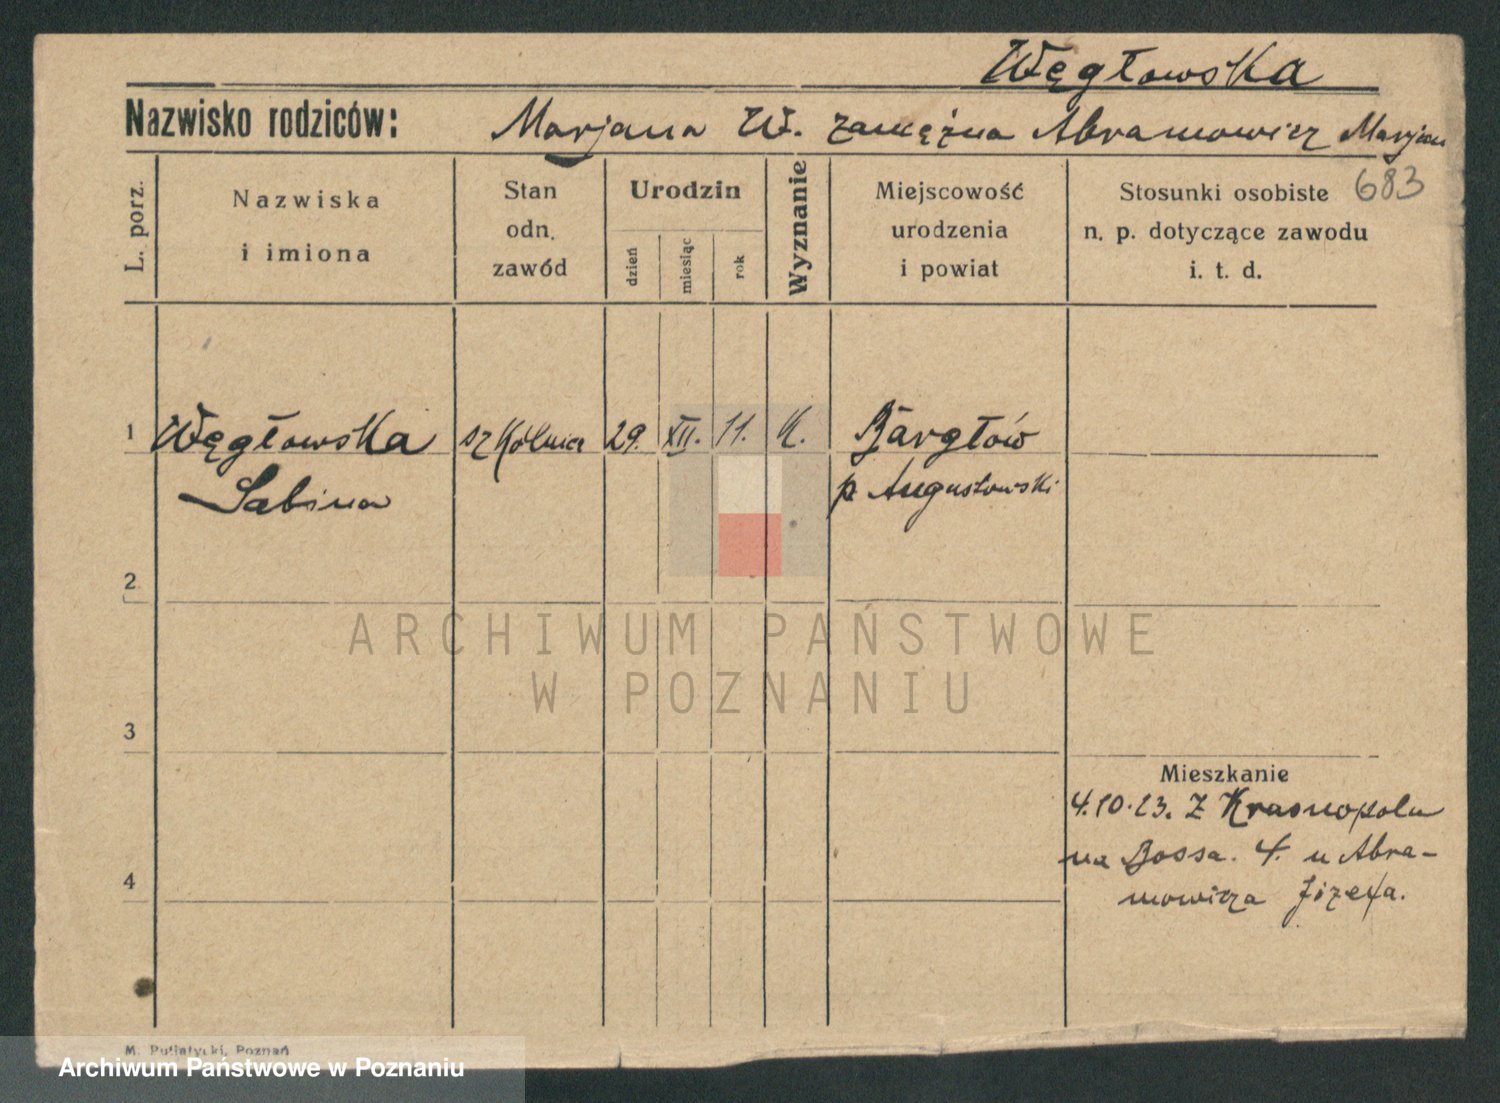 Węgłowska
Nazwisko rodziców: Marjana W. zamężna Abramowicz Marjan
683
L. porz.
Nazwiska
i imiona
Stan
odn.
zawód
Urodzin
dzień
miesiąc
rok
Wyznanie
Miejscowość
urodzenia
i powiat
Stosunki osobiste
n. p. dotyczące zawodu
i. t. d.
1 Węgłowska szkólna 29. XII. 11. K. Bargłów
Sabina p Augustowski
2
ARCHIWUM PAŃSTWOWE
W POZNANIU
3
Mieszkanie
4.10.23. Z Krasnopola
na Bossa. 4. u Abra-
mowicza Józefa.
4
M. Putiatycki, Poznań
Archiwum Państwowe w Poznaniu